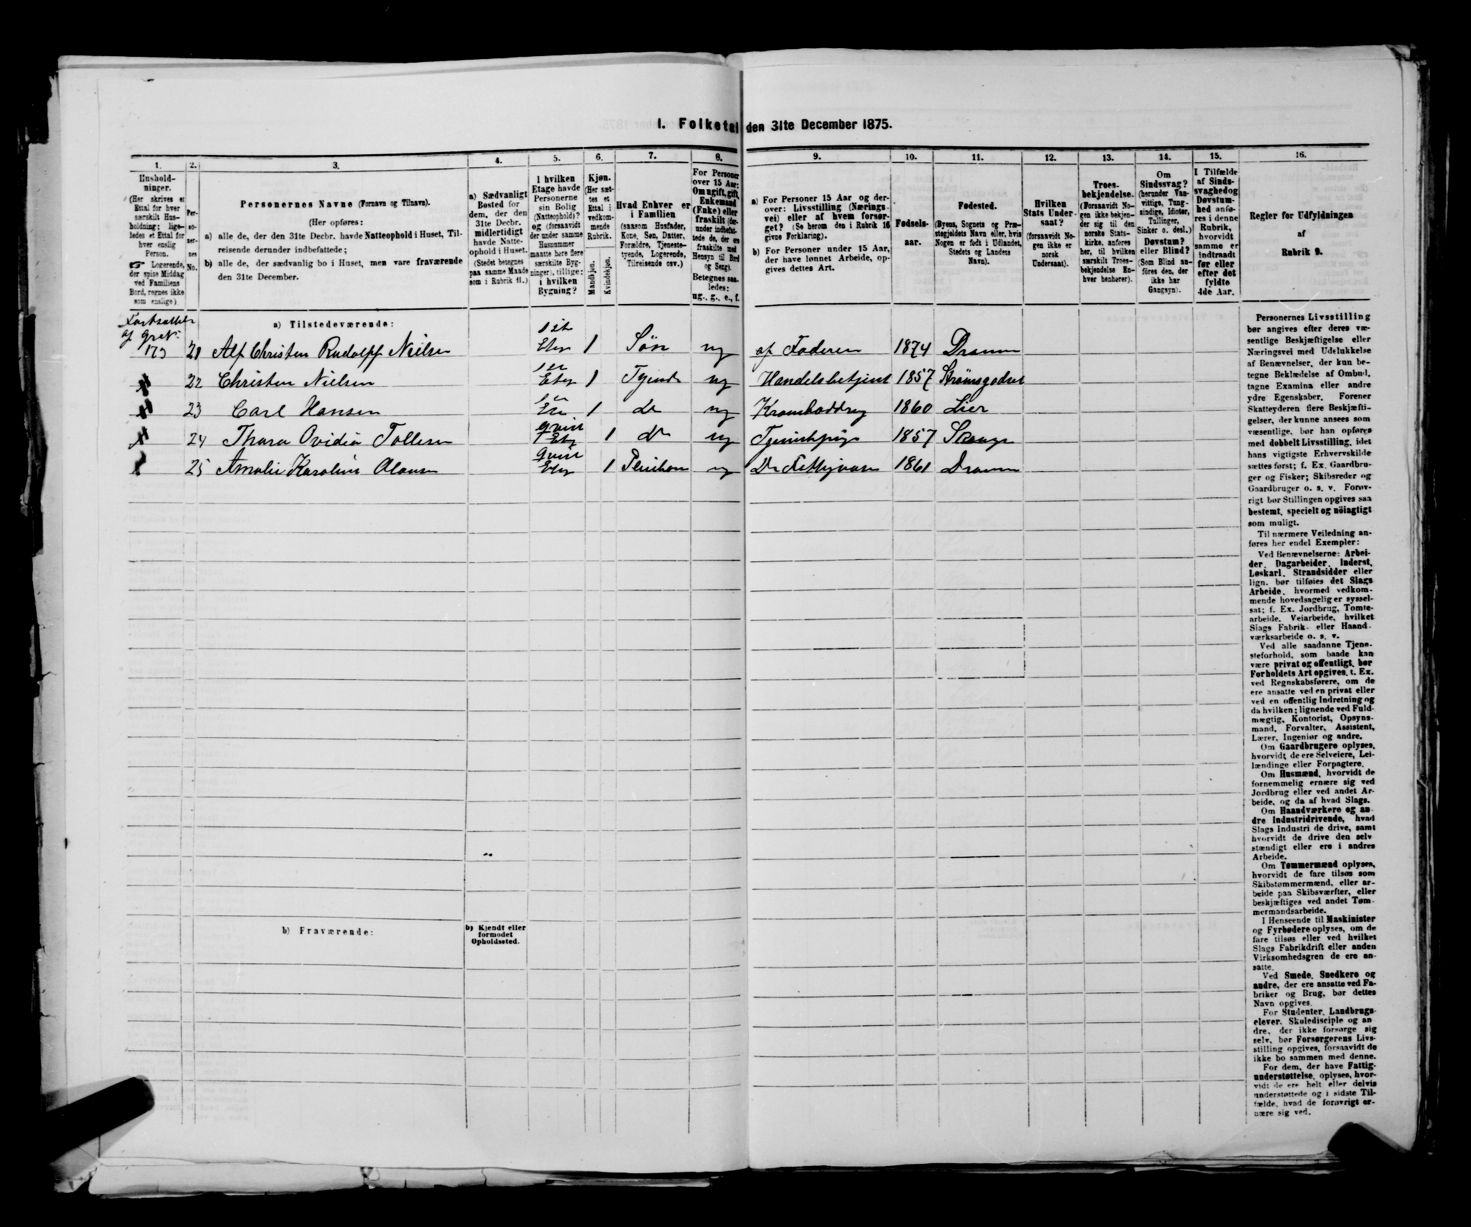 I. Folketal den 31te December 1875.
1. 2. 3. 4. 5. 6. 7. 8. 9. 10. 11. 12. 13. 14. 15. 16.
Hushold-
ninger.
(Her skrives et
Ettal for hver
særskilt Hus-
holdning; lige-
ledes et Ettal for
hver enslig
Person.
☞ Logerende,
der spise Middag
ved Familiens
Bord, regnes ikke
som enslige).
Per-
so-
ner-
nes
No.
Personernes Navne (Fornavn og Tilnavn).
(Her opføres:
a) alle de, der den 31te Decbr. havde Natteophold i Huset, Til-
reisende derunder indbefattede;
b) alle de, der sædvanlig bo i Huset, men vare fraværende
den 31te December.
a) Sædvanligt
Bosted for
dem, der den
31te Decbr.
midlertidigt
havde Natte-
ophold i Huset.
(Stedet betegnes
paa samme Maade
som i Rubrik 11.)
I hvilken
Etage havde
Personerne
sin Bolig
(Natteophold)?
og (forsaavidt
der under samme
Husnummer
maatte høre flere
særskilte Byg-
ninger), tillige:
i hvilken
Bygning?
Kjøn.
(Her sæt-
tes et
Ettal i
vedkom-
mende
Rubrik.
Mandkjøn.
Kvindekjøn.
Hvad Enhver er
i Familien
(saasom Husfader,
Kone, Søn, Datter,
Forældre, Tjeneste-
tyende, Logerende,
Tilreisende osv.)
For Personer
over 15 Aar:
Om ugift, gift,
Enkemand
(Enke) eller
fraskilt
Hensyn til Bord
og Seng).
Betegnes saa-
ledes:
ug., g., e., f.
a) For Personer 15 Aar og der-
over: Livsstilling (Nærings-
vei) eller af hvem forsør-
get? (Se herom den i Rubrik 16
givne Forklaring).
b) For Personer under 15 Aar,
der have lønnet Arbeide, op-
gives dettes Art.
Fødsels-
aar.
Fødested.
(Byens, Sognets og Præ-
stegjeldets Navn eller, hvis
Nogen er født i Udlandet,
Stedets og Landets
Navn).
Hvilken
Stats Under-
saat?
(forsaavidt No-
gen ikke er
norsk
Undersaat).
Troes-
bekjendelse.
(Forsaavidt No-
gen ikke bekjen-
der sig til den
norske Stats-
kirke, anføres
her, til hvilken
særskilt Troes-
bekjendelse En-
hver henhører).
Om
Sindssvag?
(herunder Van-
vittige, Tung-
sindige, Idioter,
Tullinger,
Sinker o. desl.)
Døvstum?
eller Blind?
(Som Blind an-
føres den, der
ikke har
Gangsyn).
I Tilfælde
af Sinds-
svaghed og
Døvstum-
hed anfø-
res i denne
Rubrik,
hvorvidt
samme er
indtraadt
før eller
efter det
fyldte
4de Aar.
Regler for Udfyldningen
af
Rubrik 9.
a) Tilstedeværende:
Fortsættes
af
173
21 Alf Christen Rudolff Nielsen 1 Søn ug af Faderen 1874 Dramm
22 Christen Nielsen 1 Tjener ug Handelsbetjent 1857 Strømsgodset
23 Carl Hansen 1 do ug 1860 Lier
24 Thora Ovidia Tollersen 1 do ug 1857
25 Amalie Karoline Olausen 1 ug 1861 Dramm
b) Fraværende:
b) Kjendt eller
formodet
Opholdssted.
Personernes Livsstilling
bør angives efter deres væ-
sentlige Beskjæftigelse eller
Næringsvei med Udelukkelse
af Benævnelser, der kun be-
tegne Beklædelse af Ombud,
tagne Examina eller andre
ydre Egenskaber. Forener
Skatteyderen flere Beskjæfti-
gelser, der kunne ansees som
væsentlige, bør han opføres
med dobbelt Livsstilling, idet
hans vigtigste Erhvervskilde
sættes først; f. Ex. Gaardbru-
ger og Fisker; Skibsreder og
Gaardbruger o. s. v. Forøv-
rigt bør Stillingen opgives saa
bestemt, specielt og nøiagtigt
som muligt.
Til nærmere Veiledning an-
føres her endel Exempler:
Ved Benævnelserne: Arbei-
der, Dagarbeider, Inderst,
Løskarl, Strandsidder eller
lign. bør tilføies det Slags
Arbeide, hvormed vedkom-
mende hovedsagelig er syssel-
sat; f. Ex. Jordbrug, Tomte-
arbeide, Veiarbeide, hvilket
Slags Fabrik- eller Haand-
værksarbeide o. s. v.
Ved alle saadanne Tjene-
steforhold, som baade kan
være privat og offentligt, bør
Forholdets Art opgives, t. Ex.
ved Regnskabsførere, om de
ere ansatte ved en privat eller
ved en offentlig Indretning og
da hvilken; lignende ved Fuld-
mægtig, Kontorist, Opsyns-
mand, Forvalter, Assistent,
Lærer, Ingeniør og andre.
Om Gaardbrugere oplyses,
hvorvidt de ere Selveiere, Lei-
lændinge eller Forpagtere.
Om Husmænd, hvorvidt de
fornemmelig ernære sig ved
Jordbrug eller ved andet Ar-
beide, og da af hvad Slags.
Om Haandværkere og an-
dre Industridrivende, hvad
Slags Industri de drive, samt
hvorvidt de drive den selv
stændigt eller ere i andres
Arbeide.
Om Tømmermænd oplyses,
hvorvidt de fare tilsøs som
Skibstømmermænd, eller ar-
beide paa Skibsværfter, eller
beskjæftiges ved andet Tøm-
mermandsarbeide.
I Henseende til Maskinister
og Fyrbødere oplyses, om de
fare tilsøs eller ved hvilket
Slags Fabrikdrift eller anden
Virksomhedsgren de ere an-
satte.
Ved Smede, Snedkere og
andre, der ere ansatte ved Fa-
briker og Brug, bør dettes
Navn opgives.
For Studenter, Landbrugs-
elever, Skoledisciple og an
dre, der ikke forsørge sig
selv, bør Forsørgerens Livs-
stilling opgives, forsaavidt de
ikke bo sammen med denne.
For dem, der have Fattig-
understøttelse, oplyses, hvor-
vidt de ere helt eller delvis
understøttede og i sidste Til-
fælde, hvad de forøvrigt er-
nære sig ved.